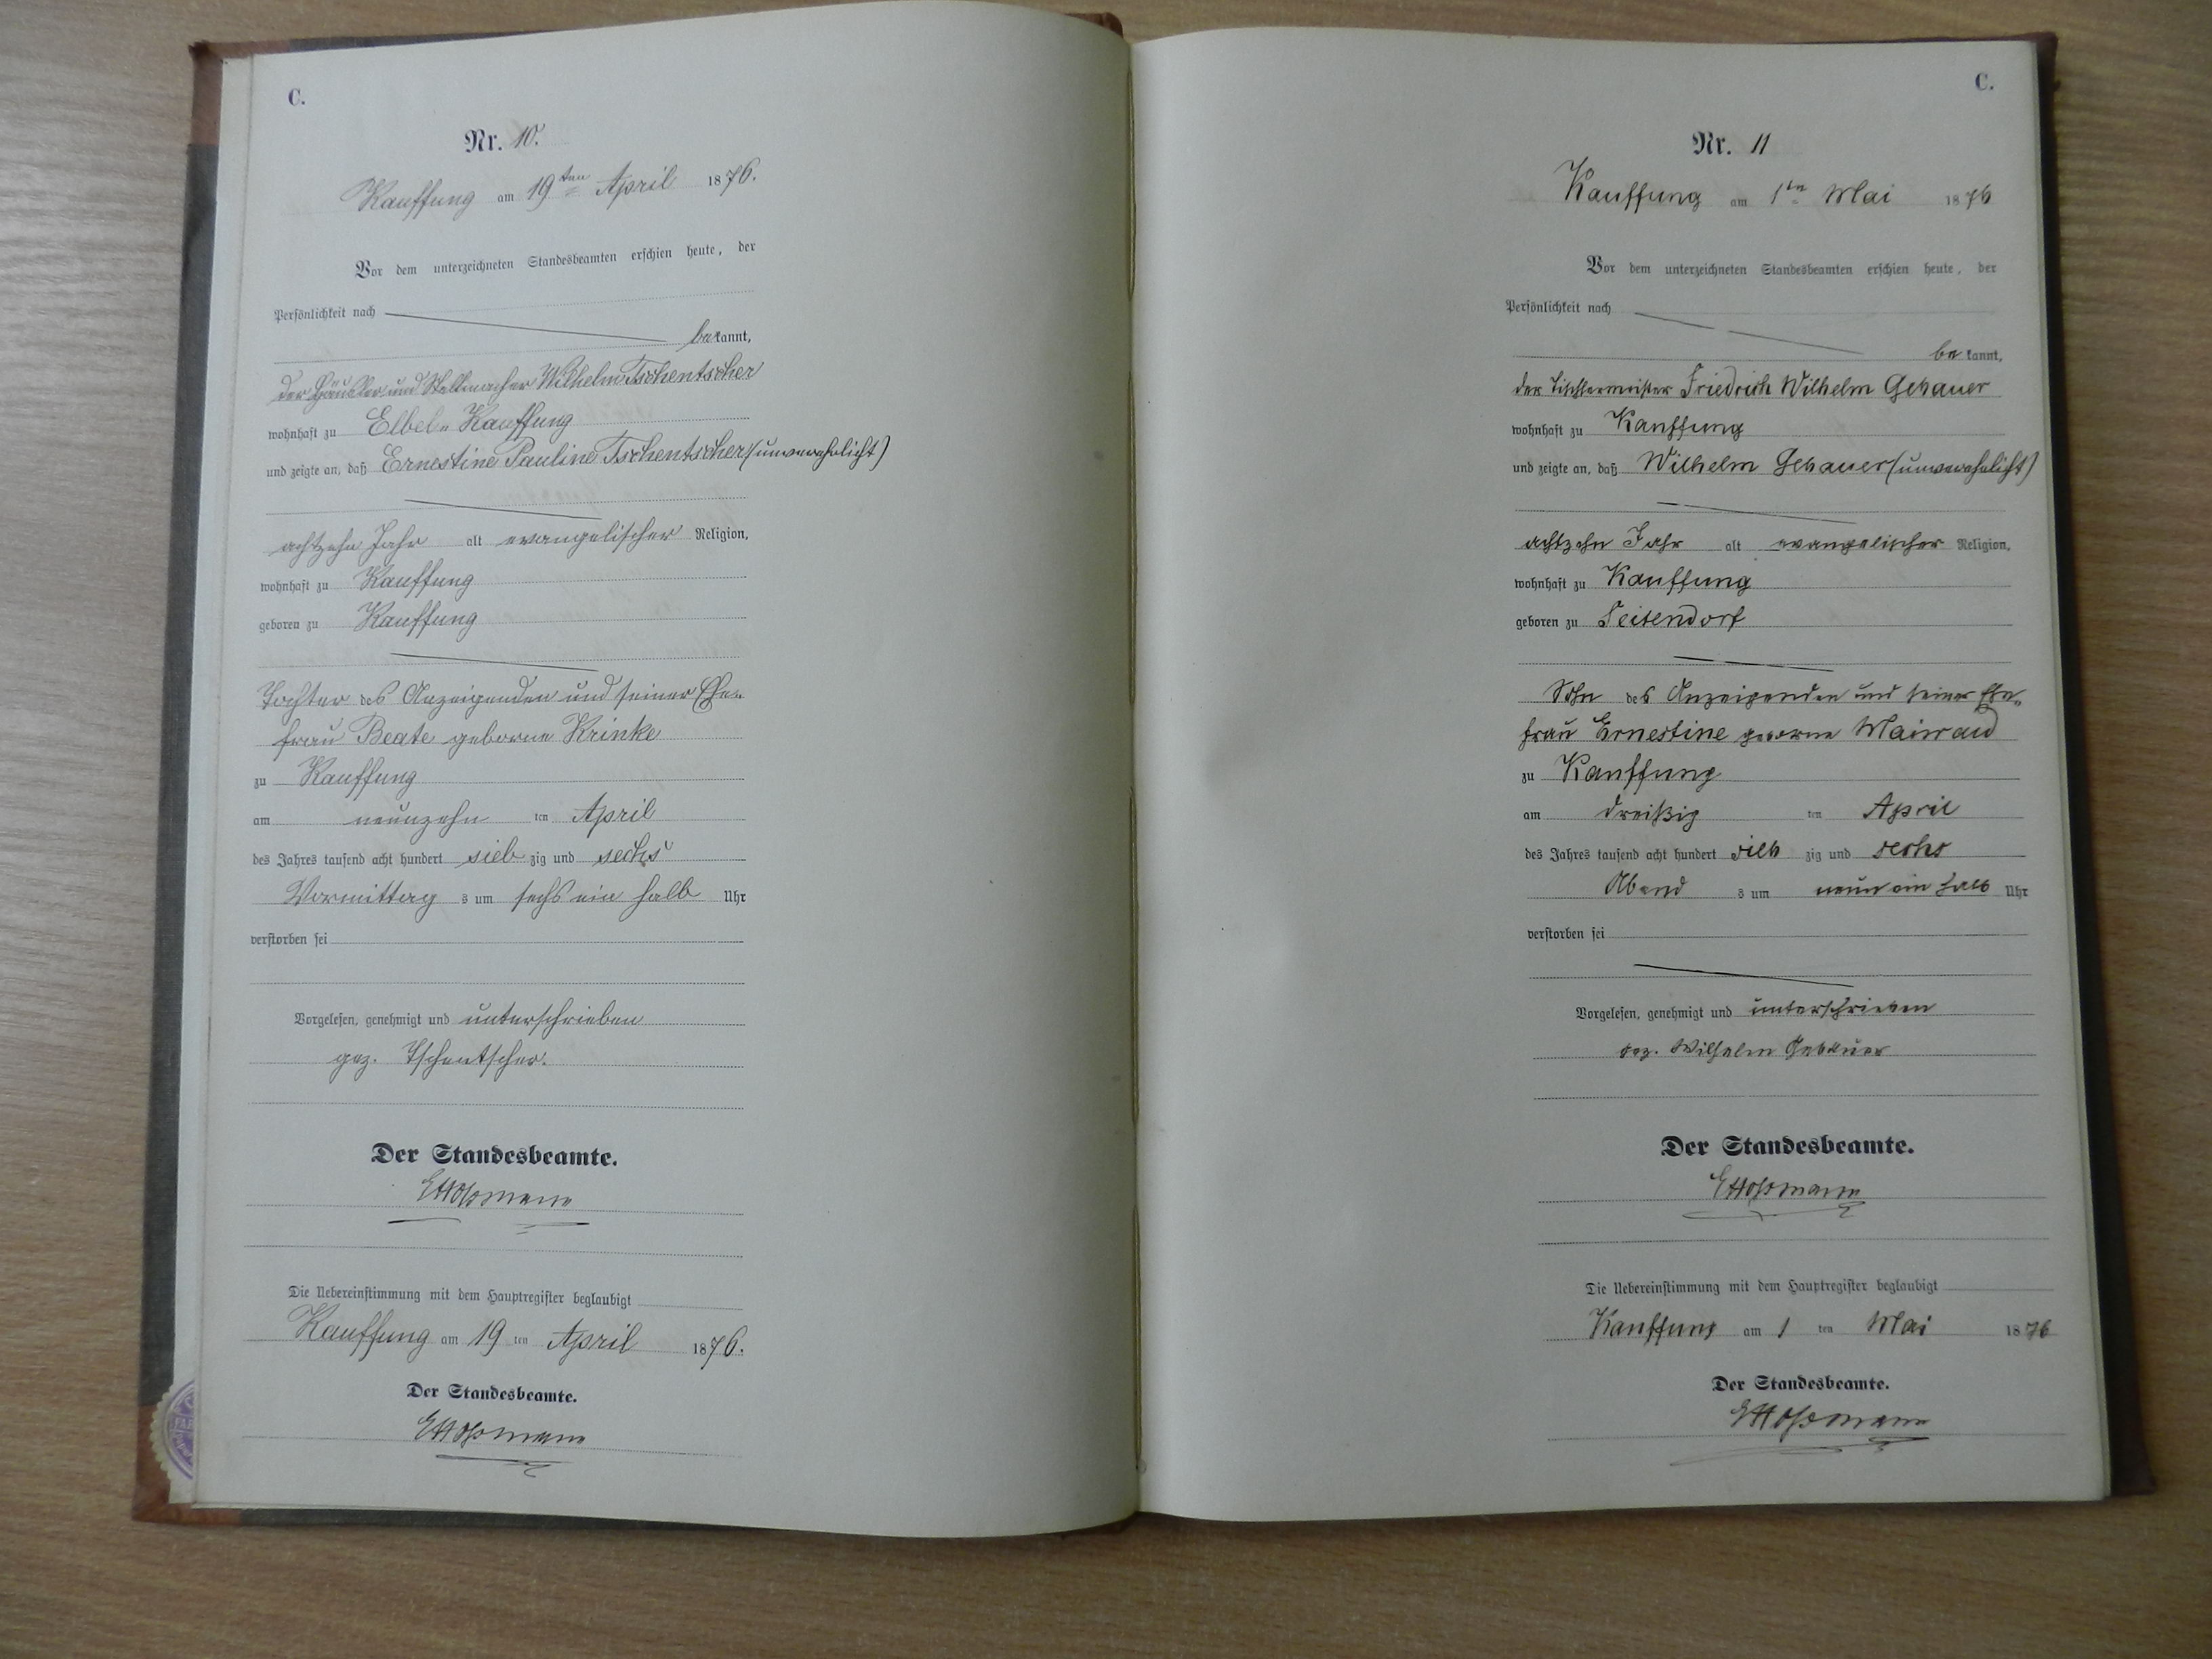 C.
Nr. 10.
Kauffung am 19ten April 1876.
Vor dem unterzeichneten Standesbeamten erschien heute, der
Persönlichkeit nach
bekannt,
der Häusler und Stellmacher Wilhelm Tschentscher
wohnhaft zu Elbel-Kauffung
und zeigte an, daß Ernestine Pauline Tschentscher (unverehelicht)
achtzehn Jahr alt evangelischer Religion,
wohnhaft zu Kauffung
geboren zu Kauffung
Tochter des Anzeigenden und seiner Ehe-
frau Beate geborne Krinke
zu Kauffung
am neunzehn ten April
des Jahres tausend acht hundert siebzig und sechs
Vormittag s um sechs ein halb Uhr
verstorben sei
Vorgelesen, genehmigt und unterschrieben
gez. Tschentscher.
Der Standesbeamte.
Die Uebereinstimmung mit dem Hauptregister beglaubigt
Kauffung am 19 ten April 1876.
Der Standesbeamte.
C.
Nr. 11
Kauffung am 1ten Mai 1876
Vor dem unterzeichneten Standesbeamten erschien heute, der
Persönlichkeit nach
bekannt,
der Tischlermeister Friedrich Wilhelm Gebauer
wohnhaft zu Kauffung
und zeigte an, daß Wilhelm Gebauer (unverehelicht)
achtzehn Jahr alt evangelischer Religion,
wohnhaft zu Kauffung
geboren zu Seitendorf
Sohn des Anzeigenden und seiner Ehe-
frau Ernestine geborne Maiwald
zu Kauffung
am dreißig ten April
des Jahres tausend acht hundert siebzig und sechs
Abend s um neun ein halb Uhr
verstorben sei
Vorgelesen, genehmigt und unterschrieben
gez. Wilhelm Gebauer
Der Standesbeamte.
Die Uebereinstimmung mit dem Hauptregister beglaubigt
Kauffung am 1 ten Mai 1876
Der Standesbeamte.